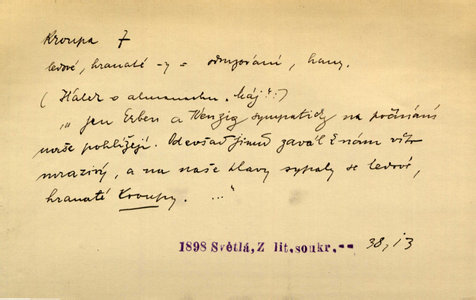 Kroupa f
ledové, hranaté -y = odmrzování, hany.
(Hálek o almanachu "Máj":)
"jen Erben a Wenzig sympaticky na počínání
naše pohlížejí. Odevšad jinud zavál k nám vítr
mrazivý, a na naše hlavy sypaly se ledové,
hranaté kroupy. ..."
1898 Světlá, Z lit. soukr. -- 38, 13